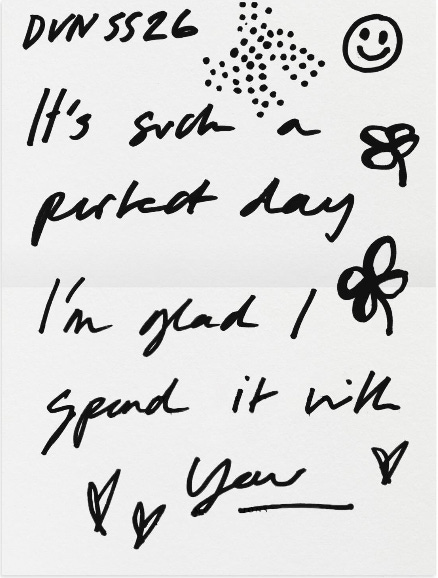 DVN SS26
It's such a
perfect day
I'm glad I
spend it with
You